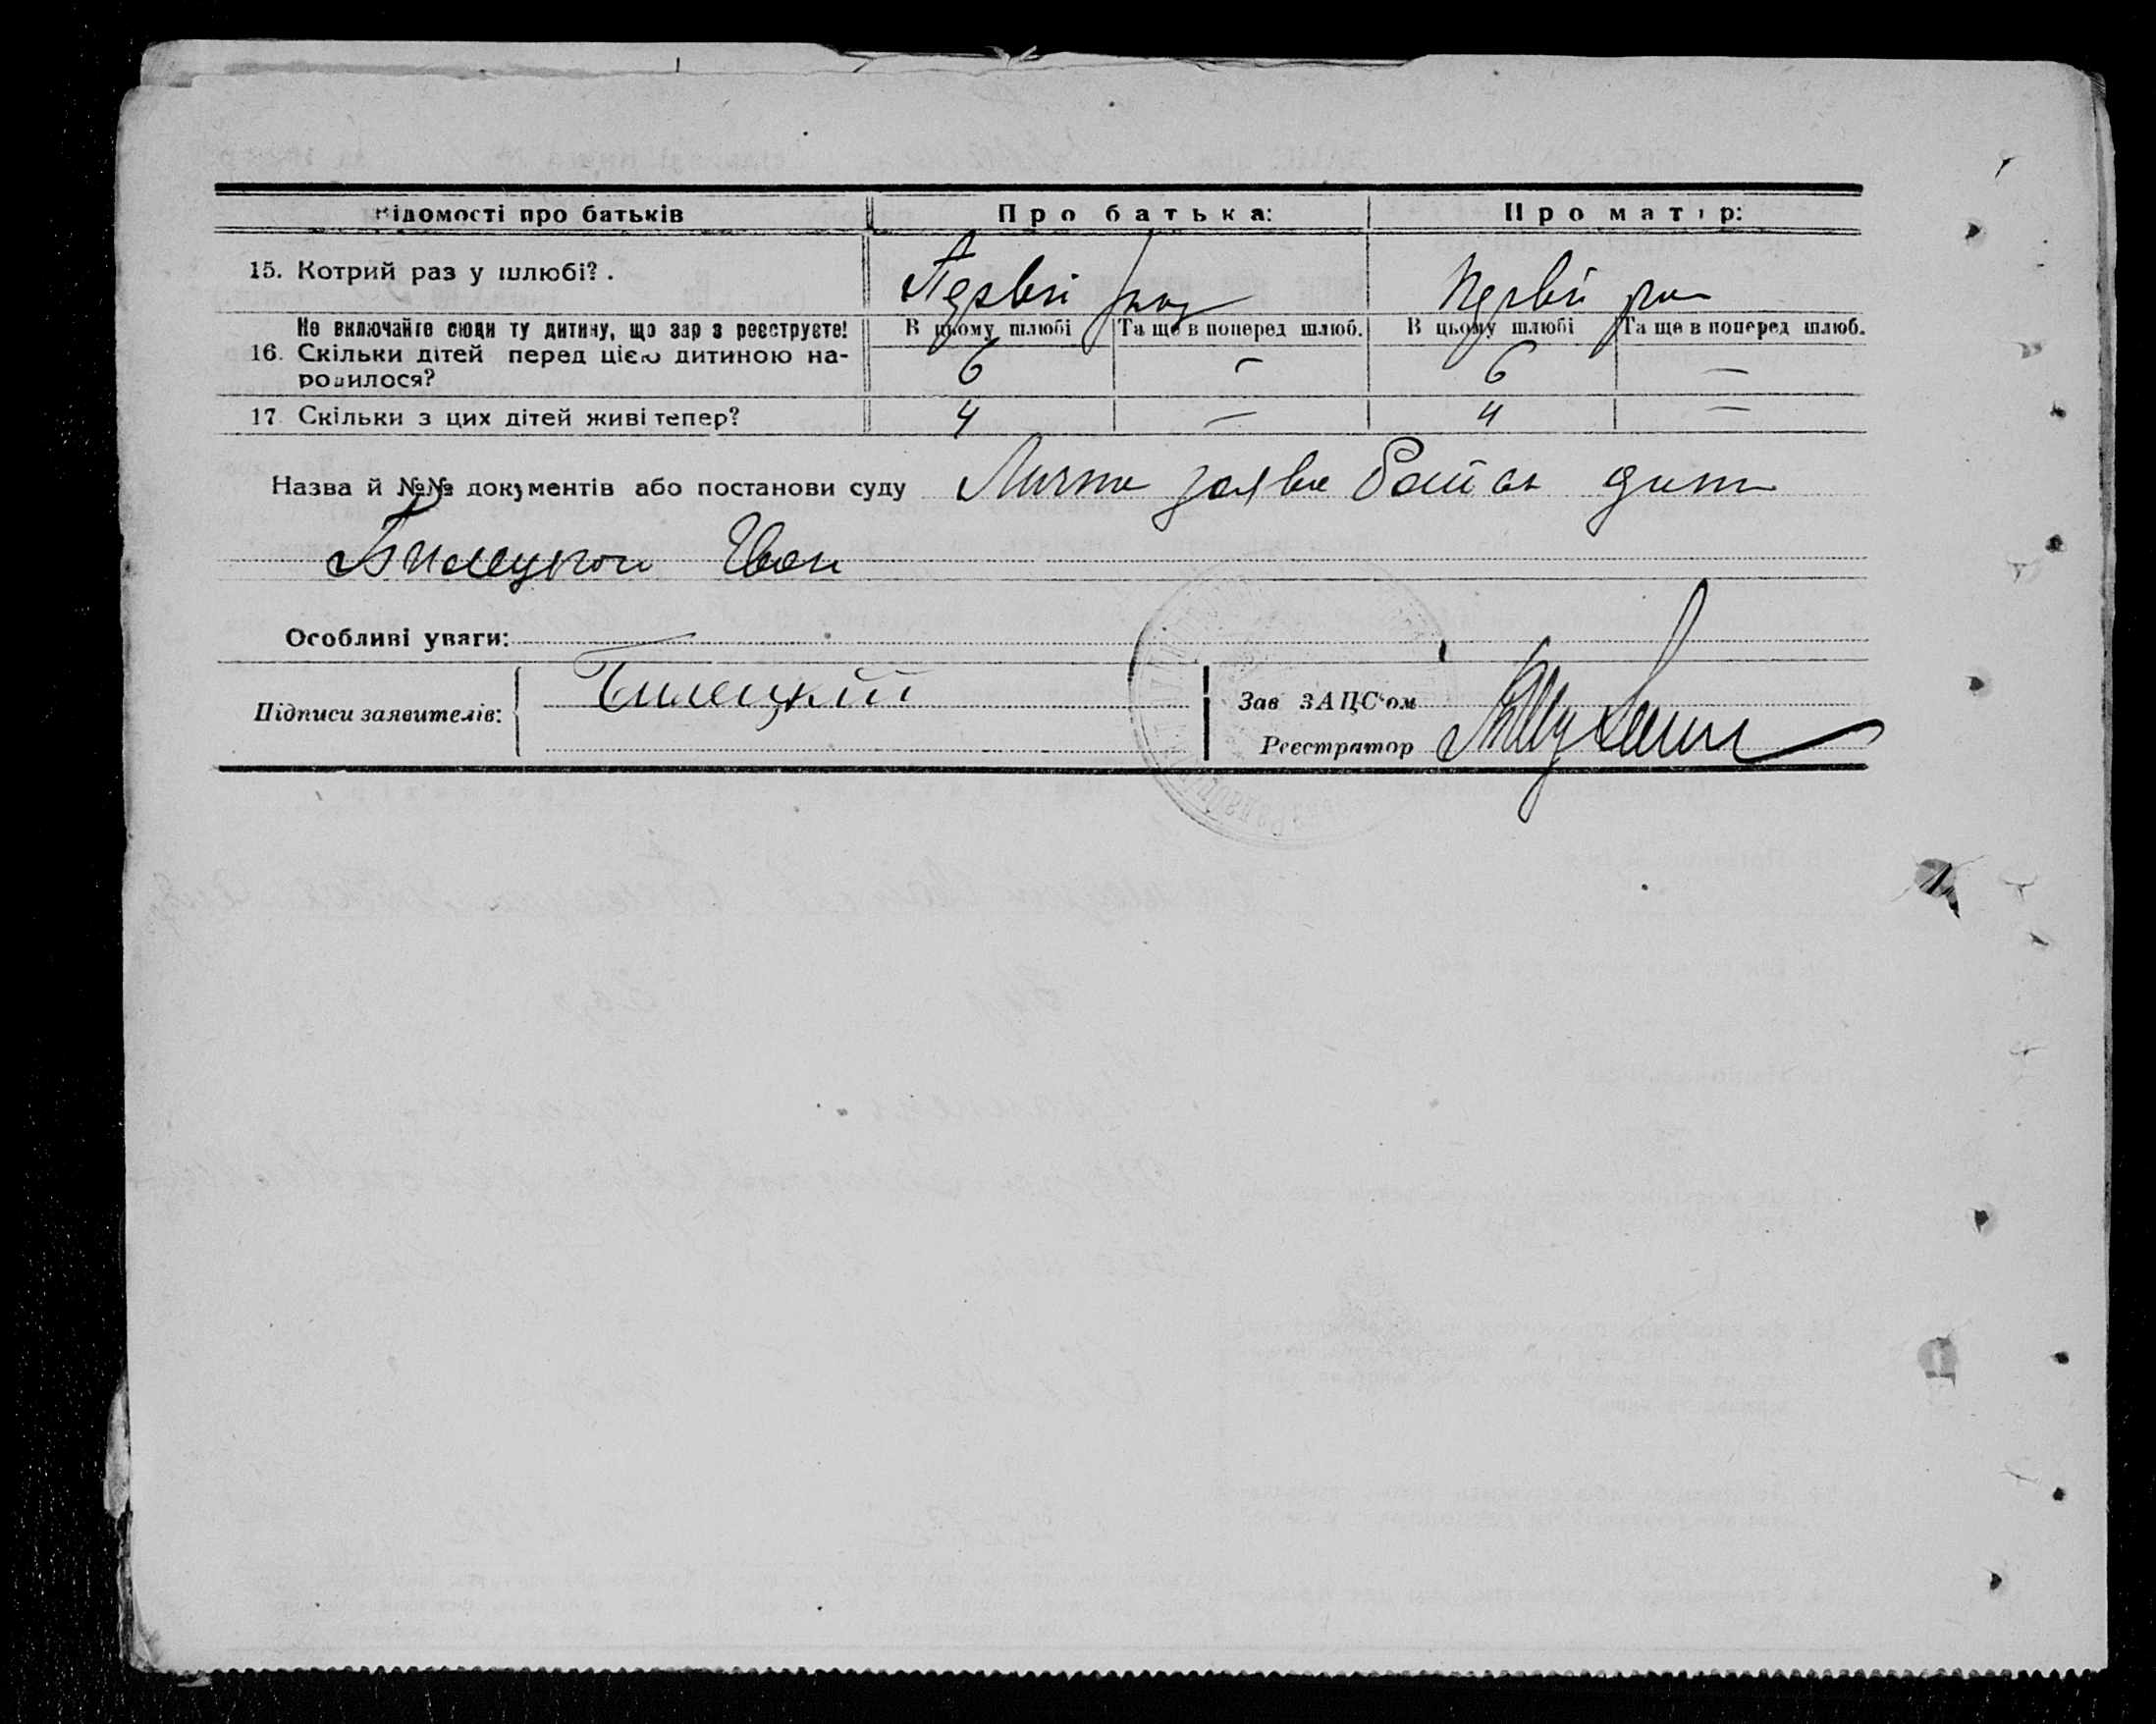 Відомості про батьків Про батька: Про матір:
15. Котрий раз у шлюбі? . Первій раз Первій раз
Не включайте сюди ту дитину, що зараз реєструєте! В цьому шлюбі Та ще в поперед шлюб. В цьому шлюбі Та ще в поперед шлюб.
16. Скільки дітей перед цією дитиною на- 6 — 6 —
родилося?
17. Скільки з цих дітей живі тепер? 4 — 4 —
Назва й №№ документів або постанови суду Лична заява
Билецкой Иван
Особливі уваги:
Підписи заявителів: Билецкій
Зав ЗАЦС'ом
Реєстратор